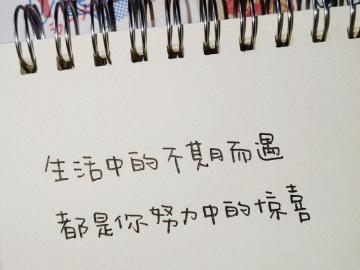 生活中的不期而遇
都是你努力中的惊喜